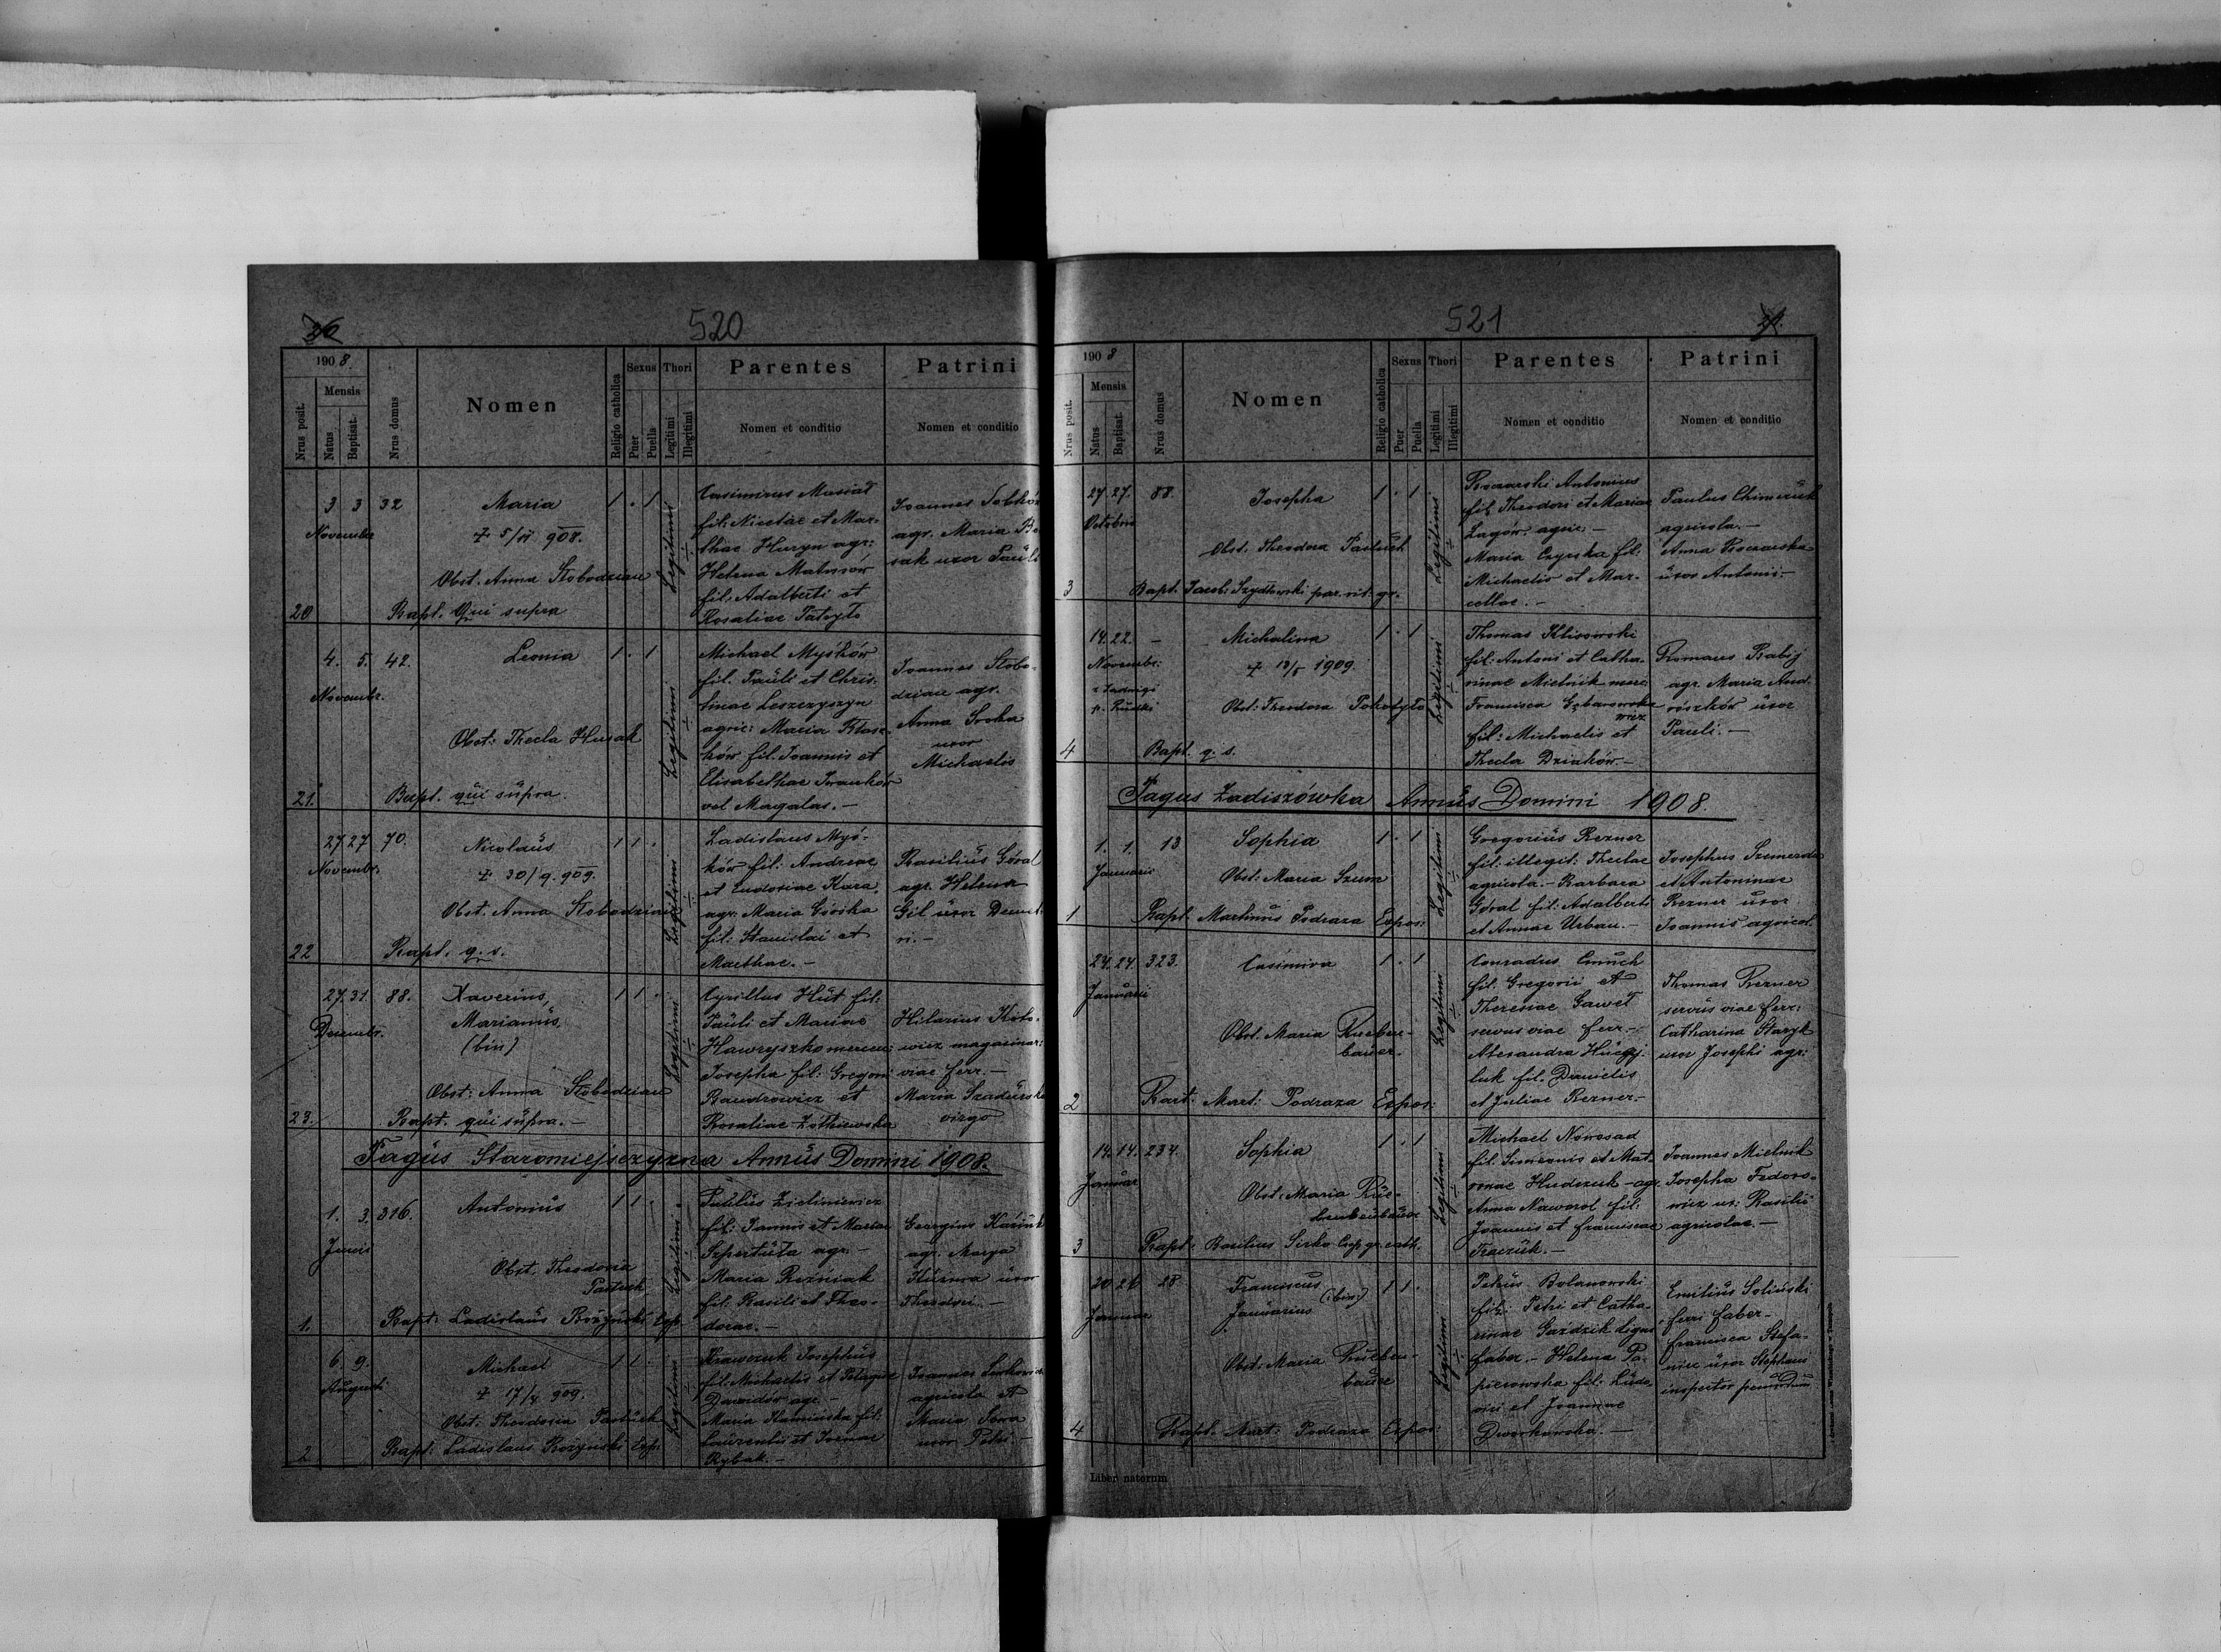 26
520
1908.
Nrus posit.
Mensis
Natus
Baptisat.
Nrus domus
Nomen
Religio catholica
Sexus
Puer
Puella
Thori
Legitimi
Illegitimi
Parentes
Nomen et conditio
Patrini
Nomen et conditio
20
3 3 32
Novembr.
Maria
Obst. Anna Słobodzian
Bapt. Qui supra
1 . 1
Legitimi
Casimirus Musiał
fil: Nicetae et Mar-
thae Huryn agr:
Helena Matusów
fil: Adalberti et
Rosaliae Tatryło
Joannes
agr. Maria
sak uxor Pauli
21.
4. 5. 42.
Novembr.
Leonia
Obst: Thecla Husak
Bapt. qui supra.
1 . 1
Legitimi
Michael Myśków
fil. Pauli et Chris-
tinae Leszczyszyn
agric: Maria
ków fil. Joannis et
Elisabethae Iwanków
vel Magalas.-
Joannes Słobo-
dzian agr.
Anna Sroka
uxor
Michaelis
22
27 27 70.
Novembr.
Nicolaus
+ 30/9. 909.
Obst. Anna Słobodzian
Bapt. q. s.
1 1 .
Legitimi
Ladislaus Myś-
ków fil: Andreae
et Eudosiae Kara.
agr. Maria Górska
fil: Stanislai et
Marthae.-
Basilius Góral
agr. Helena
Gil uxor Demet-
ri.-
23.
27. 31. 88.
Decembr.
Xaverius,
Marianus,
(bin)
Obst: Anna Słobodzian
Bapt. qui supra.-
1 1 .
Legitimi
Cyrillus Hut fil:
Pauli et Mariae
Hawryszko
Josepha fil: Gregori
Bandrowicz et
Rosaliae Żółkiewska
Hilarius Koto-
wicz magasinar:
viae ferr.-
Maria
virgo
Pagus Staromiejszczyzna Annus Domini 1908.
1.
1. 3. 316.
Junii
Antonius
Obst. Theodosia
Pastuch
Bapt: Ladislaus Rożyński Exp.
1 1 .
Legitimi
Paulus Zieliniewicz
fil: Joannis et Mariae
Szpertuta agr.-
Maria Rezniak
fil. Basili et Theo-
dorae.-
Georgius
agr. Marya
Kuźma uxor
Theodori.-
2
6. 9.
Augusti
Michael
+ 17/4 909.
Obst: Theodosia Pastuch
Bapt: Ladislaus Rożyński Exp:
1 1 .
Legitimi
Krawczuk Josephus
fil: Michaelis et Pelagiae
Dawidów agr.-
Maria Kamińska fil:
Laurentii et Joannae
Rybak.-
Joannes
agricola et
Maria Sowa
uxor Petri-
521
1908
Nrus posit.
Mensis
Natus
Baptisat.
Nrus domus
Nomen
Religio catholica
Sexus
Puer
Puella
Thori
Legitimi
Illegitimi
Parentes
Nomen et conditio
Patrini
Nomen et conditio
3
27. 27. 88.
Octobris
Josepha
Obst. Theodora Pastuch
Bapt. Jacob: Szydłowski par. rit. gr.
1 . 1
Legitimi
Antonius
fil. Theodori et Mariae
Łagów. agric.-
Maria Czyrska fil:
Michaelis et Mar-
cellae.-
Paulus
agricola.-
Anna
uxor Antonii.-
4
14. 22. -
Novembr:
Michalina
+ 18/5 1909.
Obst: Theodora Pokotyło
Bapt. q. s.
1 . 1
Legitimi
Thomas Klisowski
fil: Antoni et Catha-
rinae Mielnik merc
Francisca
fil: Michaelis et
Thecla Dziaków-
Romanus Babij
agr. Maria And-
rószków uxor
Pauli.-
Pagus Zadiszówka Annus Domini 1908.
1
1. 1. 13
Januarii
Sophia
Obst: Maria Szum
Bapt. Martinus Podraza Expos:
1 . 1
Legitimi
Gregorius Rezner
fil: illegit: Theclae
agricola.- Barbara
Góral fil: Adalberti
et Annae Urban.-
Josephus Szmerda
et Antoninae
Rezner uxor
Joannis agricol.
2
24. 24. 323.
Januarii
Casimira
Obst. Maria Rueben-
bauer.
Bart: Mart: Podraza Expos:
1 . 1
Legitimi
Conradus
fil. Gregorii et
Theresiae Gaweł
servus viae ferr.-
Alexandra
luk fil. Danielis
et Juliae Rezner.-
Thomas Rezner
servus viae ferr:
Catharina Staryk
uxor Josephi agr:
3
14. 14. 234.
Januar
Sophia
Obst: Maria Rue-
benbauer
Bapt. Basilius Sirko Coop gr. cath.
1 . 1
Legitimi
Michael Nowosad
fil. Simeonis et Mat-
ronae Huderuk - agr.
Anna Nawarol fil:
Joannis et Franciscae
Traczuk.-
Joannes Mielnik
Josepha Fedoro-
wicz ux: Basilii
agricolae.-
4
20 26 28
Januar
Franciscus
Januarius
(bini)
Obst: Maria Rueben-
bauer
Bapt. Mart: Podraza Expos:
1 1 .
Legitimi
Petrus Bolanowski
fil: Petri et Catha-
rinae Gaździk lignar
faber.- Helena Pa-
pierowska fil: Ludo-
vici et Joannae
Dworkowska.-
Emilius Soliński
ferri faber-
Francisca Stefa-
nicz uxor Stephani
inspector
Liber natorum